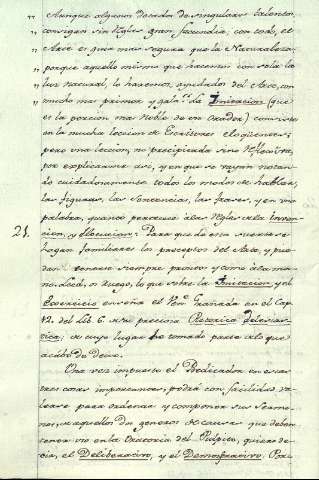 " Aunque algunos dotados de singulares talentos,
" consigan sin Reglas gran facundia, con todo, el
" Arte es guia mas segura que la Naturaleza:
" porque aquello mismo que hacemos con sola la
" luz natural, lo haremos, ayudados del Arte, con
" mucho mas primor y gala". La Imitacion (que
es la porcion mas noble de un Orador) consiste
en la mucha leccion de Escritores eloqüentes;
pero una leccion, no precipitada sino
por explicarme asi, y en que se vayan notan-
do cuidadosamente todos los modos de hablar,
las figuras, las sentencias, las frases, y en una
palabra, quanto pertenece à las Reglas de la Inven-
21. cion, y Elocucion: Para que de esta suerte se
hagan familiares los preceptos del Arte, y pue-
dan tenerse siempre promtos y como à la ma-
no. Lea, os ruego, lo que sobre la Imitacion, y el
Exercicio enseña el Ven. Granada en el Cap.
12. del Lib. 6 de su preciosa Retorica Eclesias-
tica; de cuyo lugar he tomado parte de lo que
acabo de decir.
Una vez impuesto el Predicador en estas
tres cosas importantes, podrá con facilidad va-
lerse para ordenar y componer sus Sermo-
nes, de aquellos dos generos de causas que deben
tener uso en la Oratoria del Pulpito, quiero de-
cir, el Deliberativo, y el Demostrativo. Por-